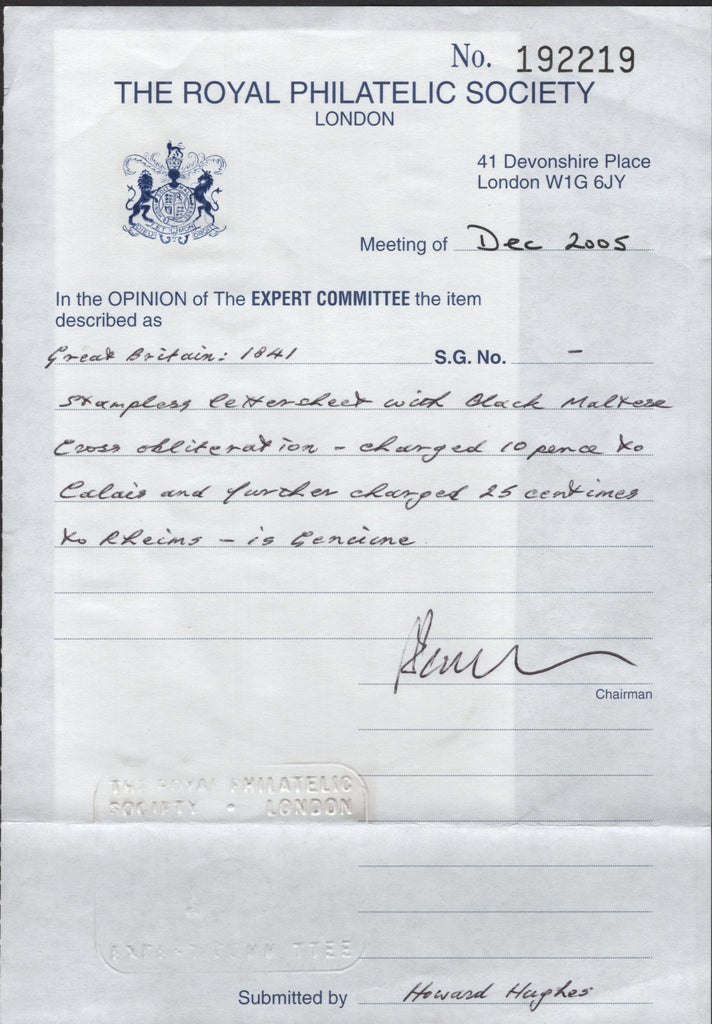 No. 192219
THE ROYAL PHILATELIC SOCIETY
LONDON
41 Devonshire Place
London W1G 6JY
Meeting of Dec 2005
In the OPINION of The EXPERT COMMITTEE the item
described as
Great Britain: 1841 S.G. No. -
Stampless lettersheet with Black Maltese
Cross obliteration - charged 10 pence to
Calais and further charged 25 centimes
to Rheims - is Genuine
Chairman
THE ROYAL PHILATELIC
SOCIETY • LONDON
EXPERT COMMITTEE
Submitted by Howard Hughes